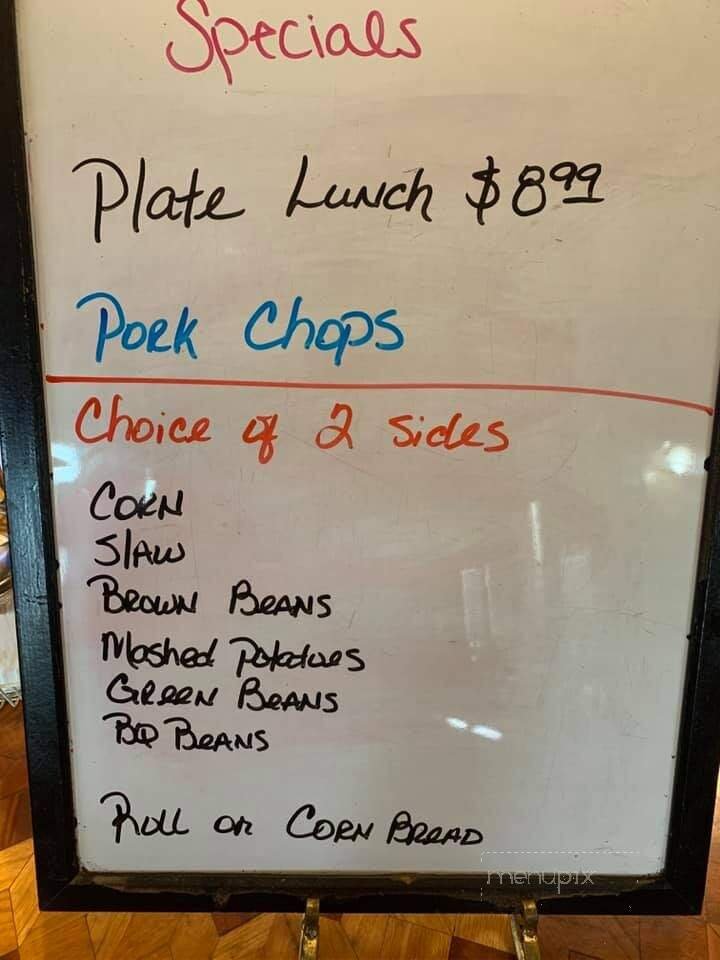 Specials
Plate Lunch $8.99
Pork Chops
Choice of 2 Sides
Corn
Slaw
Brown Beans
Mashed Potatoes
Green Beans
BQ Beans
Roll or Corn Bread
menupix